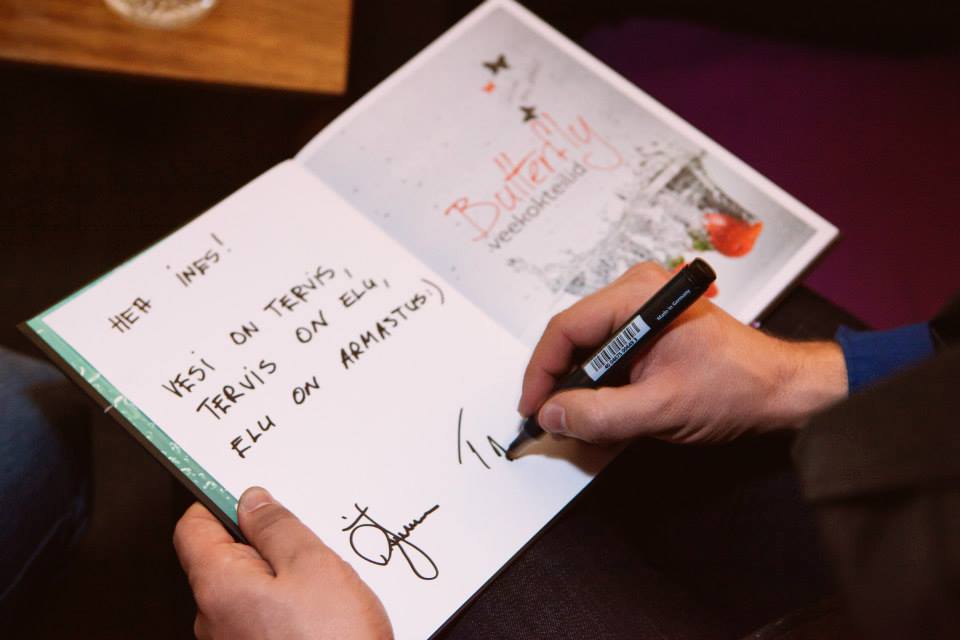 HEA INES!
VESI ON TERVIS,
TERVIS ON ELU,
ELU ON ARMASTUS:)
Butterfly
veekokteilid
Made in Germany